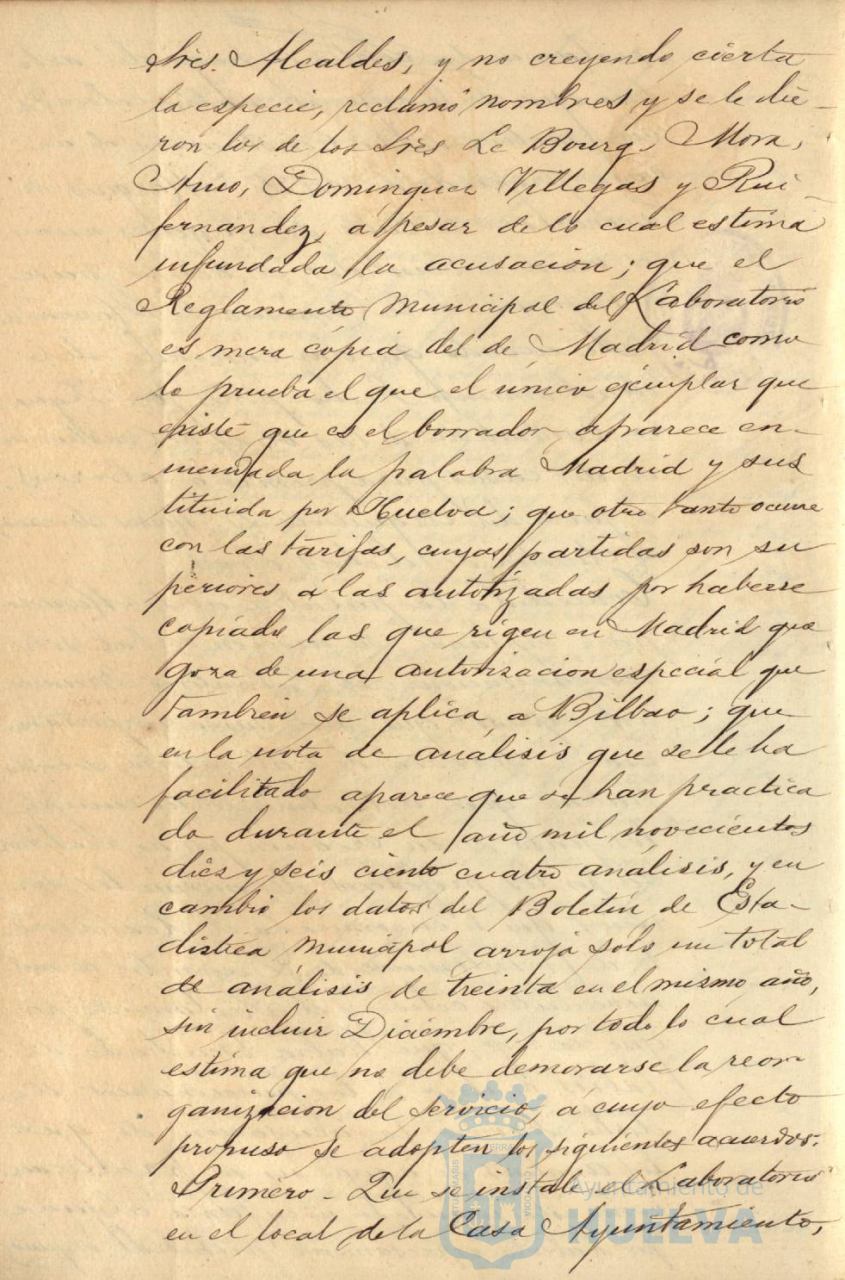 Sres. Alcaldes, y no creyendo cierta
la especie, reclamó nombres y se le die-
ron los de los Sres Le Bourg, Mora,
Amo, Dominguez Villegas y Rui-
fernandez, á pesar de lo cual estima
infundada la acusación; que el
Reglamento Municipal del Laboratorio
es mera cópia del de Madrid como
lo prueba el que el único ejemplar que
existe que es el borrador aparece en-
mendada la palabra Madrid y sus
tituida por Huelva; que otro tanto ocurre
con las tarifas, cuyas partidas son su
periores á las autorizadas por haberse
copiado las que rigen en Madrid que
goza de una autorizacion especial que
tambien se aplica á Bilbao; que
en la nota de análisis que se le ha
facilitado aparece que se han practica
do durante el año mil novecientos
diez y seis ciento cuatro análisis, y en
cambio los datos del Boletín de Esta-
distica Municipal arroja solo un total
de análisis de treinta en el mismo año,
sin incluir Diciembre, por todo lo cual
estima que no debe demorarse la reor-
ganizacion del servicio, á cuyo efecto
propuso se adopten los siguientes acuerdos:
Primero - Que se instale el Laboratorio
en el local de la Casa Ayuntamiento,
Ayuntamiento de
HUELVA